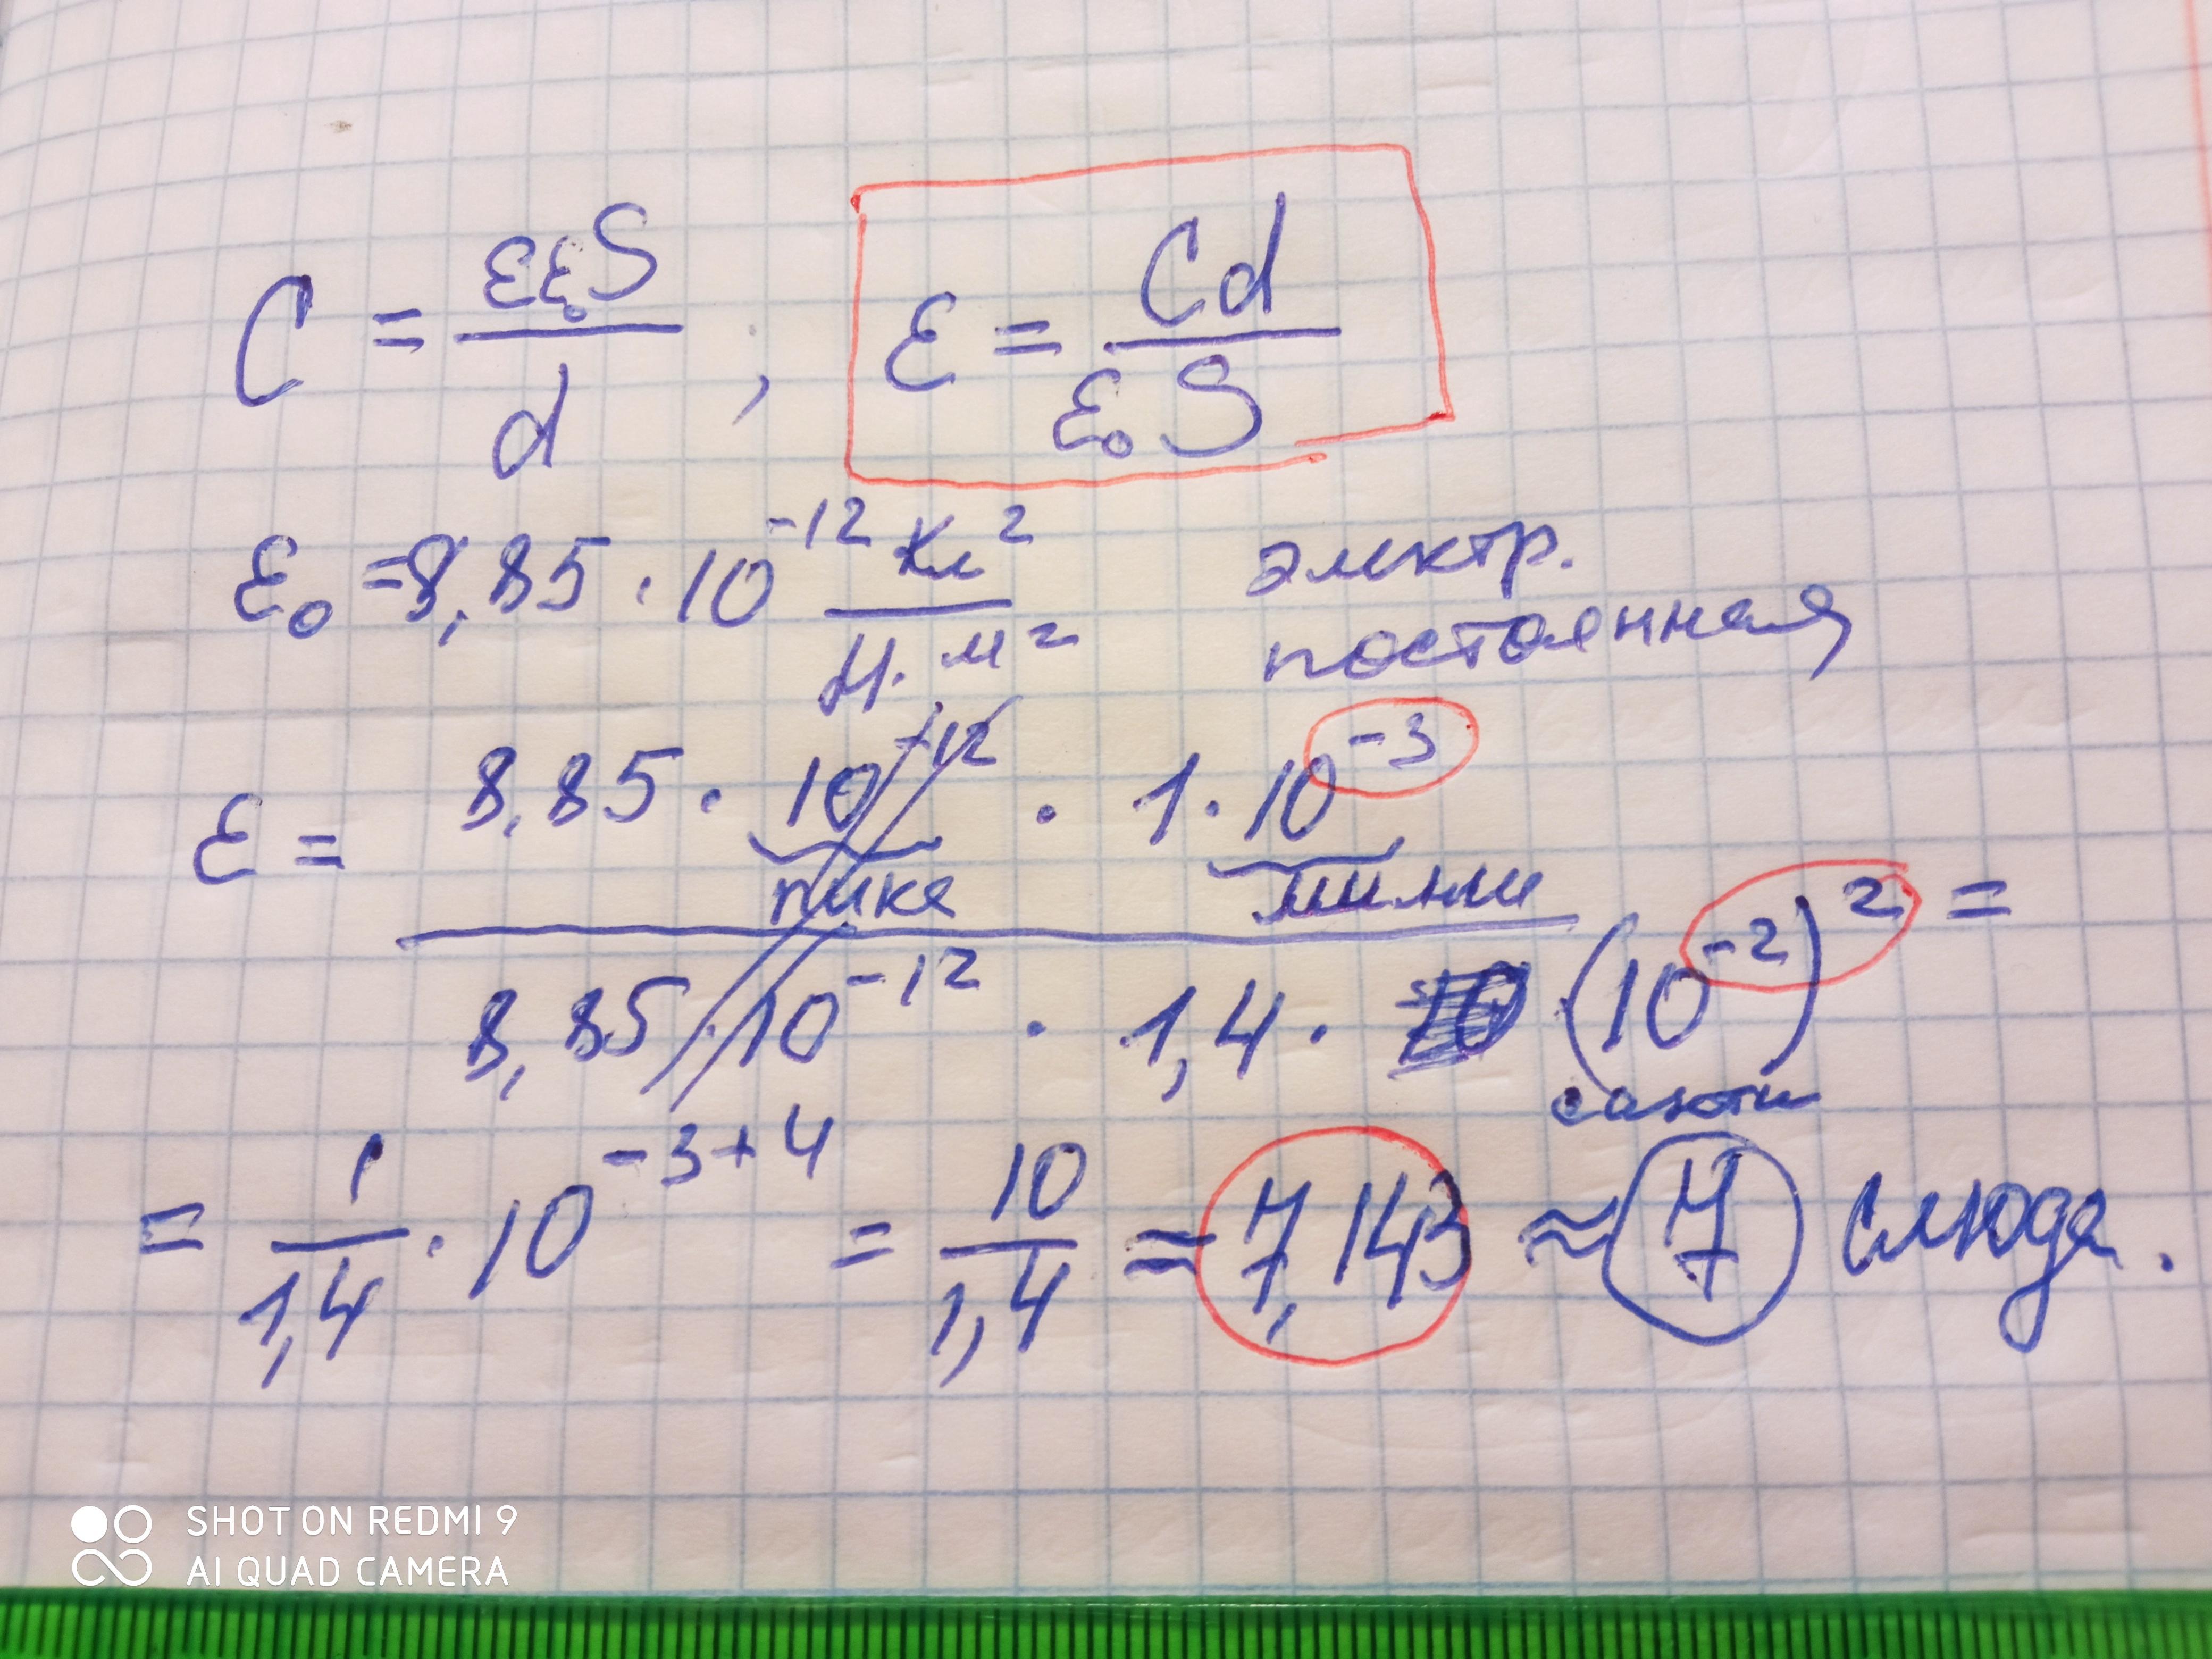 C = εε₀S / d ; ε = Cd / ε₀S
ε₀ = 8,85 · 10⁻¹² Кл² / Н · м² электр.
постоянная
ε = 8,85 · 10⁻¹² · 1 · 10⁻³
пико милли
8,85 · 10⁻¹² · 1,4 · (10⁻²)² =
санти
= 1 / 1,4 · 10⁻³⁺⁴ = 10 / 1,4 = 7,143 ≈ 7 слюда.
SHOT ON REDMI 9
AI QUAD CAMERA